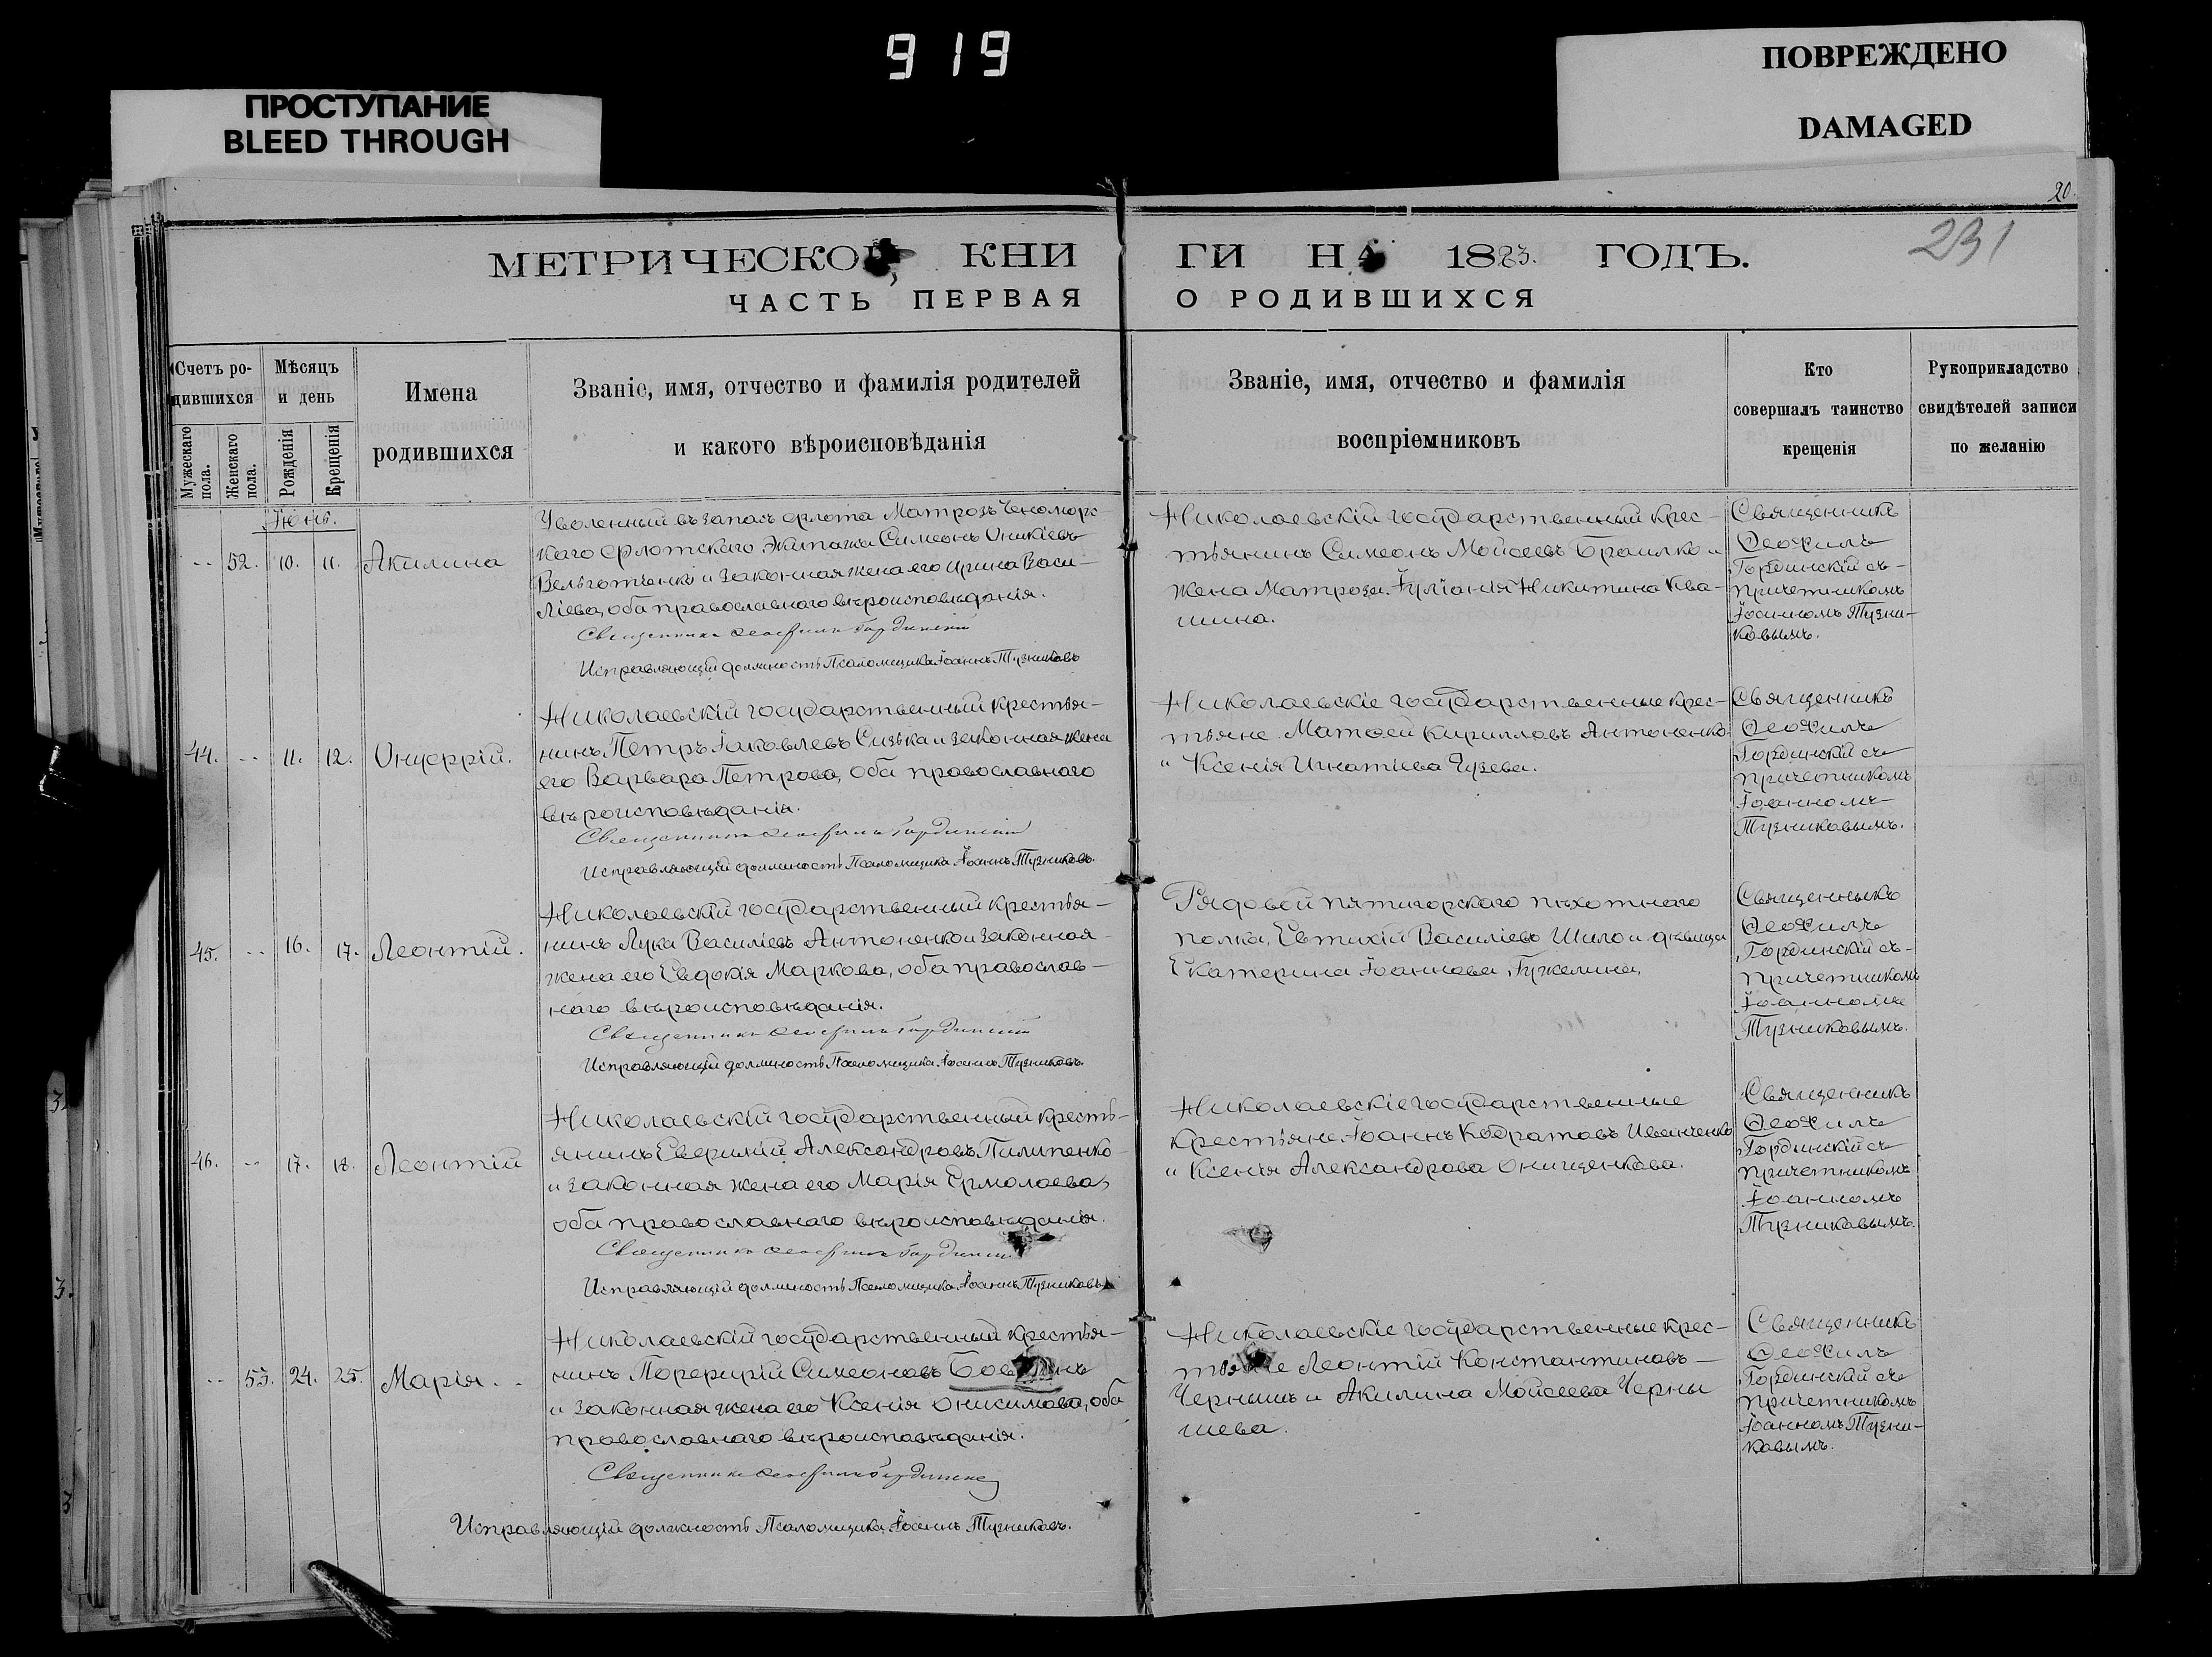 919
ПРОСТУПАНИЕ
BLEED THROUGH
ПОВРЕЖДЕНО
DAMAGED
20.
231
МЕТРИЧЕСКОЙ КНИ ГИ НА 1883. ГОДЪ.
ЧАСТЬ ПЕРВАЯ О РОДИВШИХСЯ
Счетъ ро-
дившихся
Мужескаго пола.
Женскаго пола.
Мѣсяцъ
и день
Рожденія
Крещенія
Имена
родившихся
Званіе, имя, отчество и фамилія родителей
и какого вѣроисповѣданія
Званіе, имя, отчество и фамилія
воспріемниковъ
Кто
совершалъ таинство
крещенія
Рукоприкладство
свидѣтелей записи
по желанію
Іюнь.
-- 52. 10. 11. Акилина
Уволенный въ запасъ флота Матрозъ Черноморс-
каго Флотскаго Экипажа Симеонъ Оникіевъ
и законная жена его Ирина Васи-
ліева, оба православнаго вѣроисповѣданія.
Священникъ Ѳеофилъ Гординскій
Исправляющій должность Псаломщика Іоаннъ Тузниковъ
Николаевскій государственный крес-
тьянинъ Симеонъ Мойсеевъ Браилко и
жена Матроза Іуліанія Никитина Ква-
шина.
Священникъ
Ѳеофилъ
Гординскій съ
причетникомъ
Іоанномъ Тузни-
ковымъ.
44. -- 11. 12. Онуфрій.
Николаевскій государственный крестья-
нинъ Петръ Іаковлевъ Сизька и законная жена
его Варвара Петрова, оба православнаго
вѣроисповѣданія.
Священникъ Ѳеофилъ Гординскій
Исправляющій должность Псаломщика Іоаннъ Тузниковъ.
Николаевскіе государственные крес-
тьяне Матѳей Кирилловъ Антоненко
и Ксенія Игнатіева Гузева.
Священникъ
Ѳеофилъ
Гординскій съ
причетникомъ
Іоанномъ
Тузниковымъ.
45. -- 16. 17. Леонтій.
Николаевскій государственный крестья-
нинъ Лука Василіевъ Антоненко и законная
жена его Евдокія Маркова, оба православ-
наго вѣроисповѣданія.
Священникъ Ѳеофилъ Гординскій
Исправляющій должность Псаломщика Іоаннъ Тузниковъ.
Рядовой пятигорскаго пѣхотнаго
полка, Евтихій Василіевъ Шило и дѣвица
Екатерина Іоаннова Гужелина.
Священникъ
Ѳеофилъ
Гординскій съ
причетникомъ
Іоанномъ
Тузниковымъ.
46. -- 17. 18. Леонтій
Николаевскій государственный кресть-
янинъ Евфимій Александровъ Пилипенко
и законная жена его Марія Ермолаева,
оба православнаго вѣроисповѣданія.
Священникъ Ѳеофилъ Гординскій
Исправляющій должность Псаломщика Іоаннъ Тузниковъ
Николаевскіе государственные
крестьяне Іоаннъ Кодратовъ Иванченко
и Ксенія Александрова Онищенкова.
Священникъ
Ѳеофилъ
Гординскій съ
причетникомъ
Іоанномъ
Тузниковымъ.
-- 53. 24. 25. Марія. -
Николаевскій государственный крестья-
нинъ Порфирій Симеоновъ
и законная жена его Ксенія Онисимова, оба
православнаго вѣроисповѣданія.
Священникъ Ѳеофилъ Гординскій
Исправляющій должность Псаломщика Іоаннъ Тузниковъ.
Николаевскіе государственные крес-
тьяне Леонтій Константиновъ
Чернышъ и Акилина Мойсеева Черны
шева.
Священникъ
Ѳеофилъ
Гординскій съ
причетникомъ
Іоанномъ Тузни-
ковымъ.